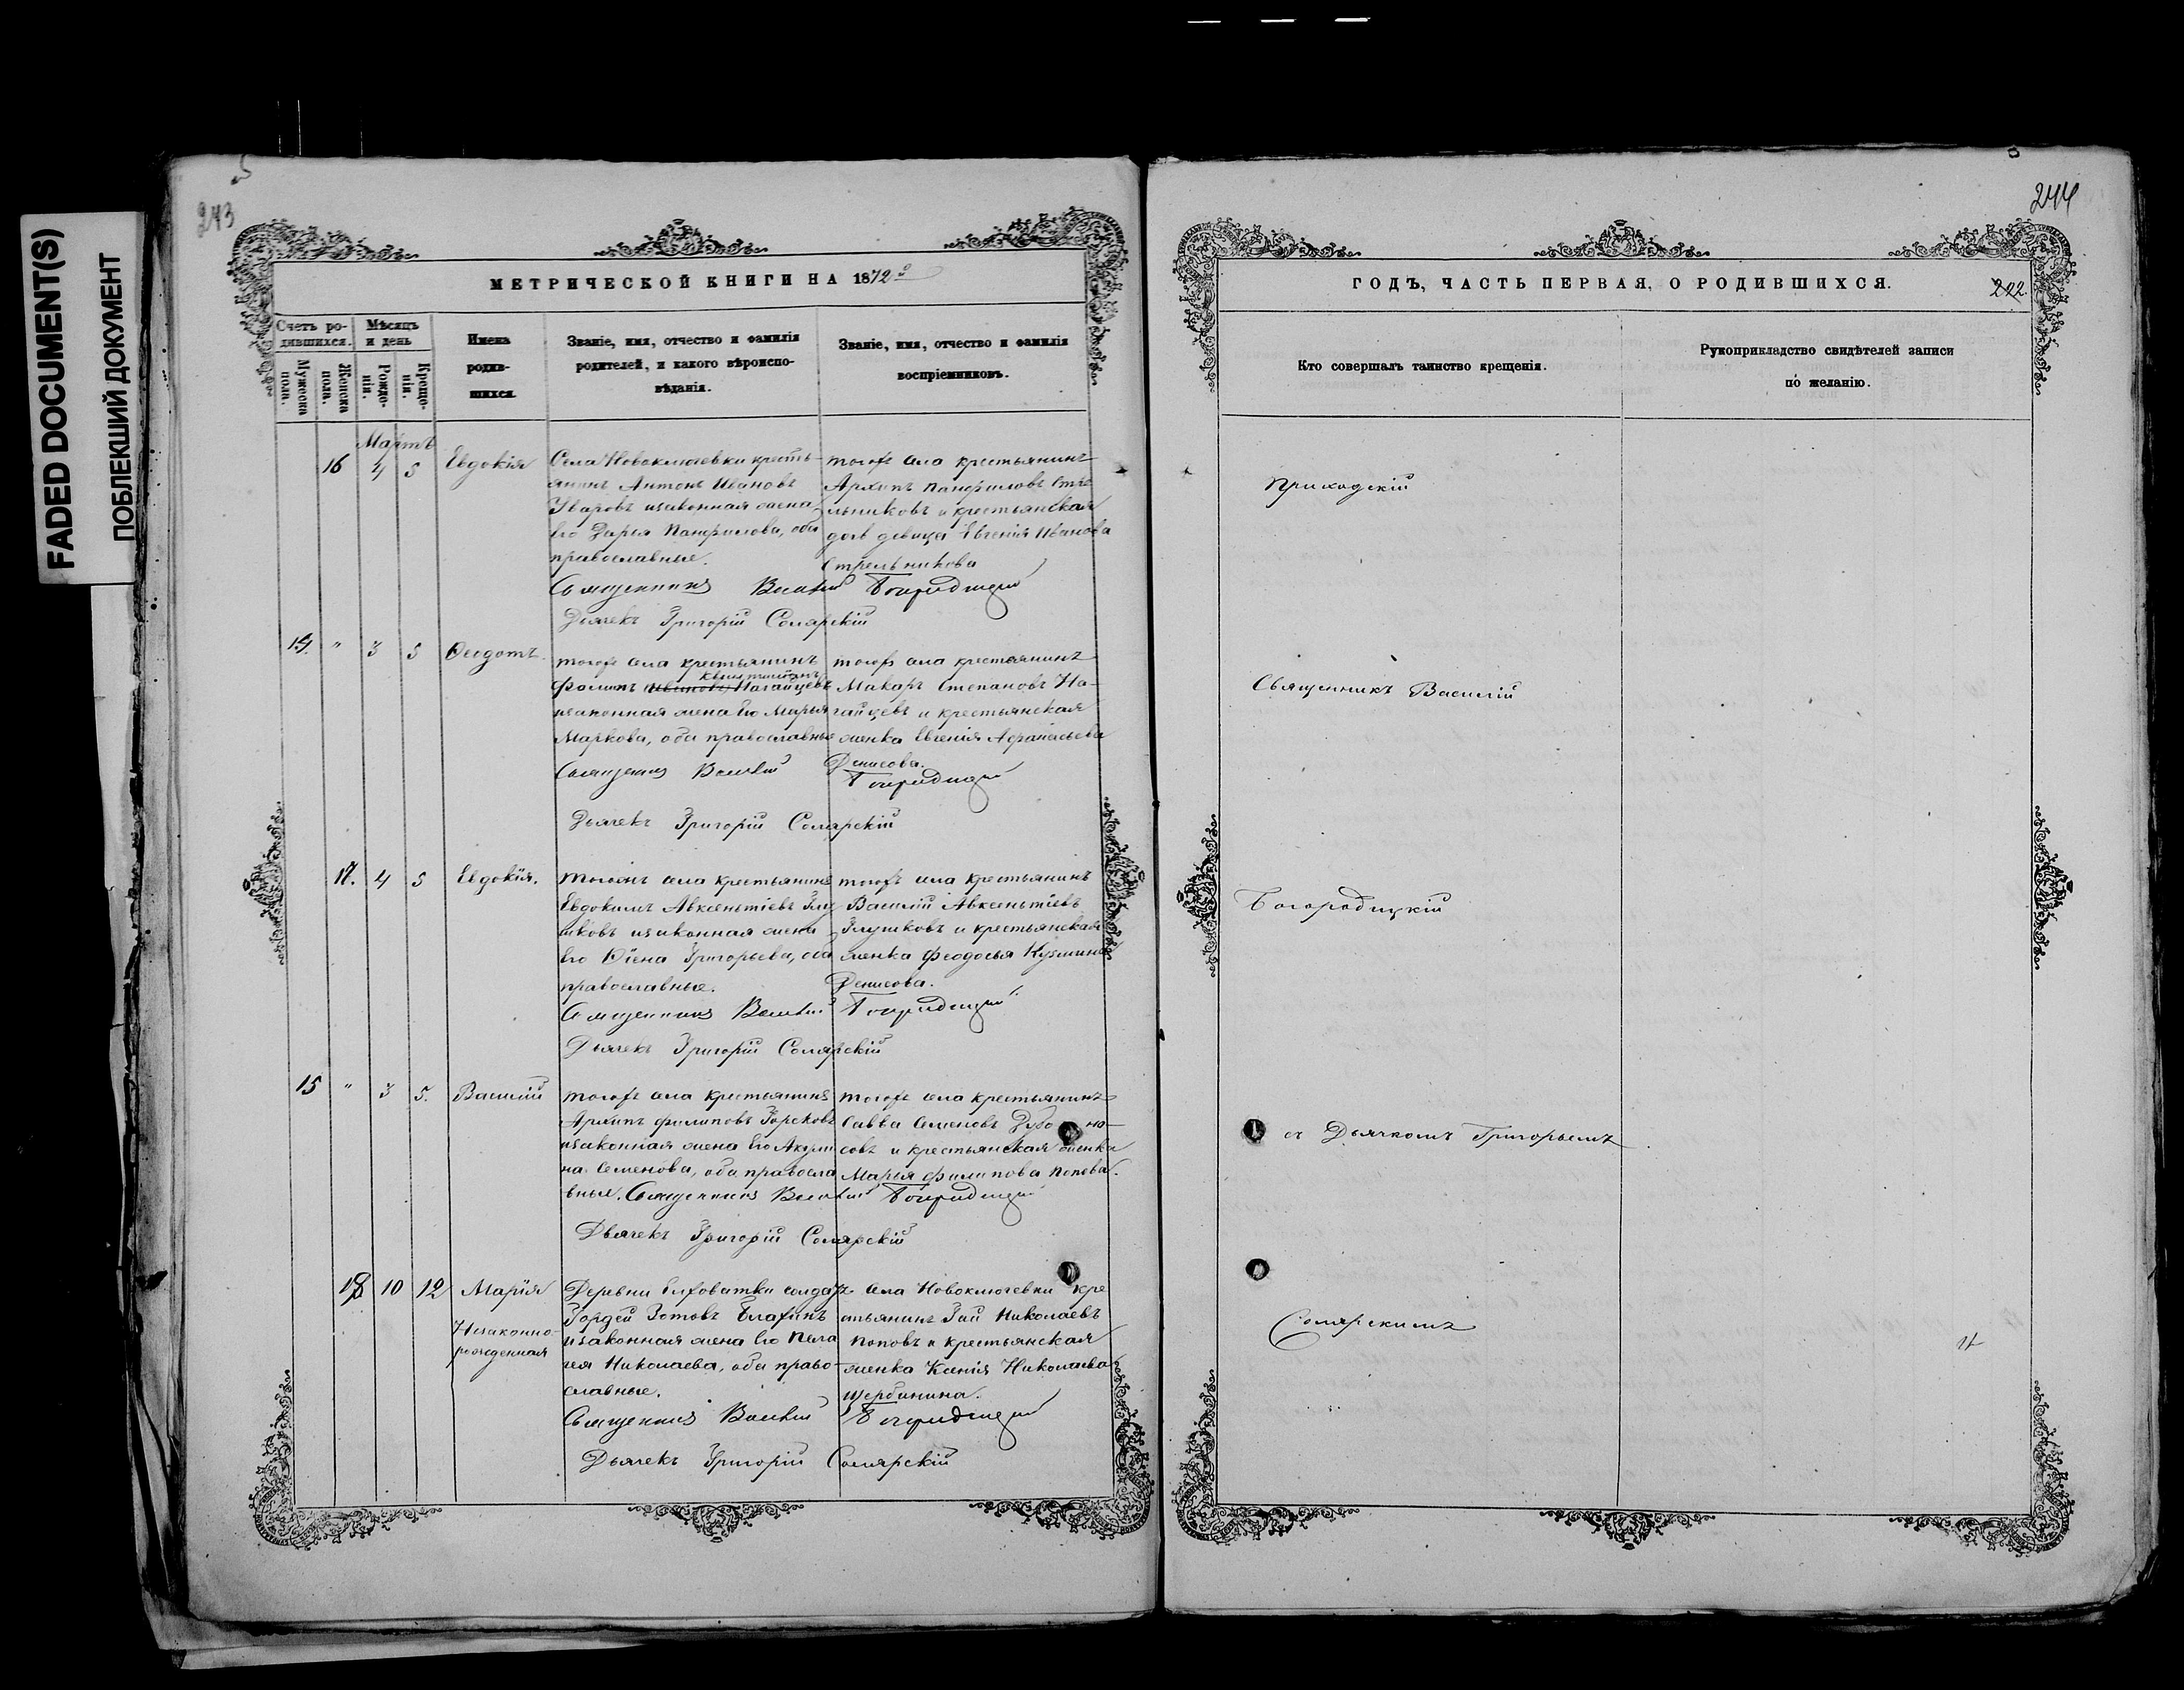 FADED DOCUMENT(S)
ПОБЛЕКШИЙ ДОКУМЕНТ
243
МЕТРИЧЕСКОЙ КНИГИ НА 1872
Счетъ ро-
дившихся.
Мужеска
пола.
Женска
пола.
Мѣсяцъ
и день
Рожде-
нія.
Креще-
нія.
Имена
родив-
шихся.
Званіе, имя, отчество и фамилія
родителей, и какого вѣроиспо-
вѣданія.
Званіе, имя, отчество и фамилія
воспріемниковъ.
Мартъ
16 4 5 Евдокія
Села Новоключевки кресть-
янинъ Антонъ Ивановъ
Уваровъ изаконная жена
его Дарья Панфилова, оба
православные.
тогожъ села крестьянинъ
Архипъ Панфиловъ Стре
льниковъ и крестьянская
дочь девица Евгенія Иванова
Стрельникова
Священникъ Василій Богородицкій
Дьячекъ Григорій Солярскій
14. " 3 5 Ѳеодотъ.
тогожъ села крестьянинъ
Филипъ Нагайцевъ
изаконная жена его Марья
Маркова, оба православные
тогожъ села крестьянинъ
Макаръ Степановъ На-
гайцевъ и крестьянская
женка Евгенія Афанасьева
Денисова.
Священникъ Василій Богородицкій
Дьячекъ Григорій Солярскій
17. 4 5 Евдокія.
тогожъ села крестьянинъ
Евдокимъ Авксентіевъ Глу
шковъ изаконная жена
его Ѳіена Григорьева, оба
православные.
тогожъ села крестьянинъ
Василій Авксентіевъ
Глушковъ и крестьянская
женка Феодосья Кузмина
Денисова.
Священникъ Василій Богородицкій
Дьячекъ Григорій Солярскій
15 " 3 5. Василій
тогожъ села крестьянинъ
Архипъ Филиповъ Горсковъ
изаконная жена его Акули
на Семенова, оба правосла
вные.
тогожъ села крестьянинъ
Савва Семеновъ Дубо но-
совъ и крестьянская женка
Марья Филипова Попова.
Священникъ Василій Богородицкій
Дьячекъ Григорій Солярскій
18 10 12 Марія
Незаконно-
рожденная
Деревни солдатъ
Гордѣй Зотовъ Елагинъ
изаконная жена его Пела
гея Николаева, оба право-
славные.
Села Новоключевки кре
стьянинъ Гай Николаевъ
Поповъ и крестьянская
женка Ксенія Николаева
Щербинина.
Священникъ Василій Богородицкій
Дьячекъ Григорій Солярскій
244
ГОДЪ, ЧАСТЬ ПЕРВАЯ, О РОДИВШИХСЯ.
222.
Кто совершалъ таинство крещенія.
Рукоприкладство свидѣтелей записи
по желанію.
Приходскій
Священникъ Василій
Богородицкій
съ Дьячкомъ Григорьемъ
Солярскимъ